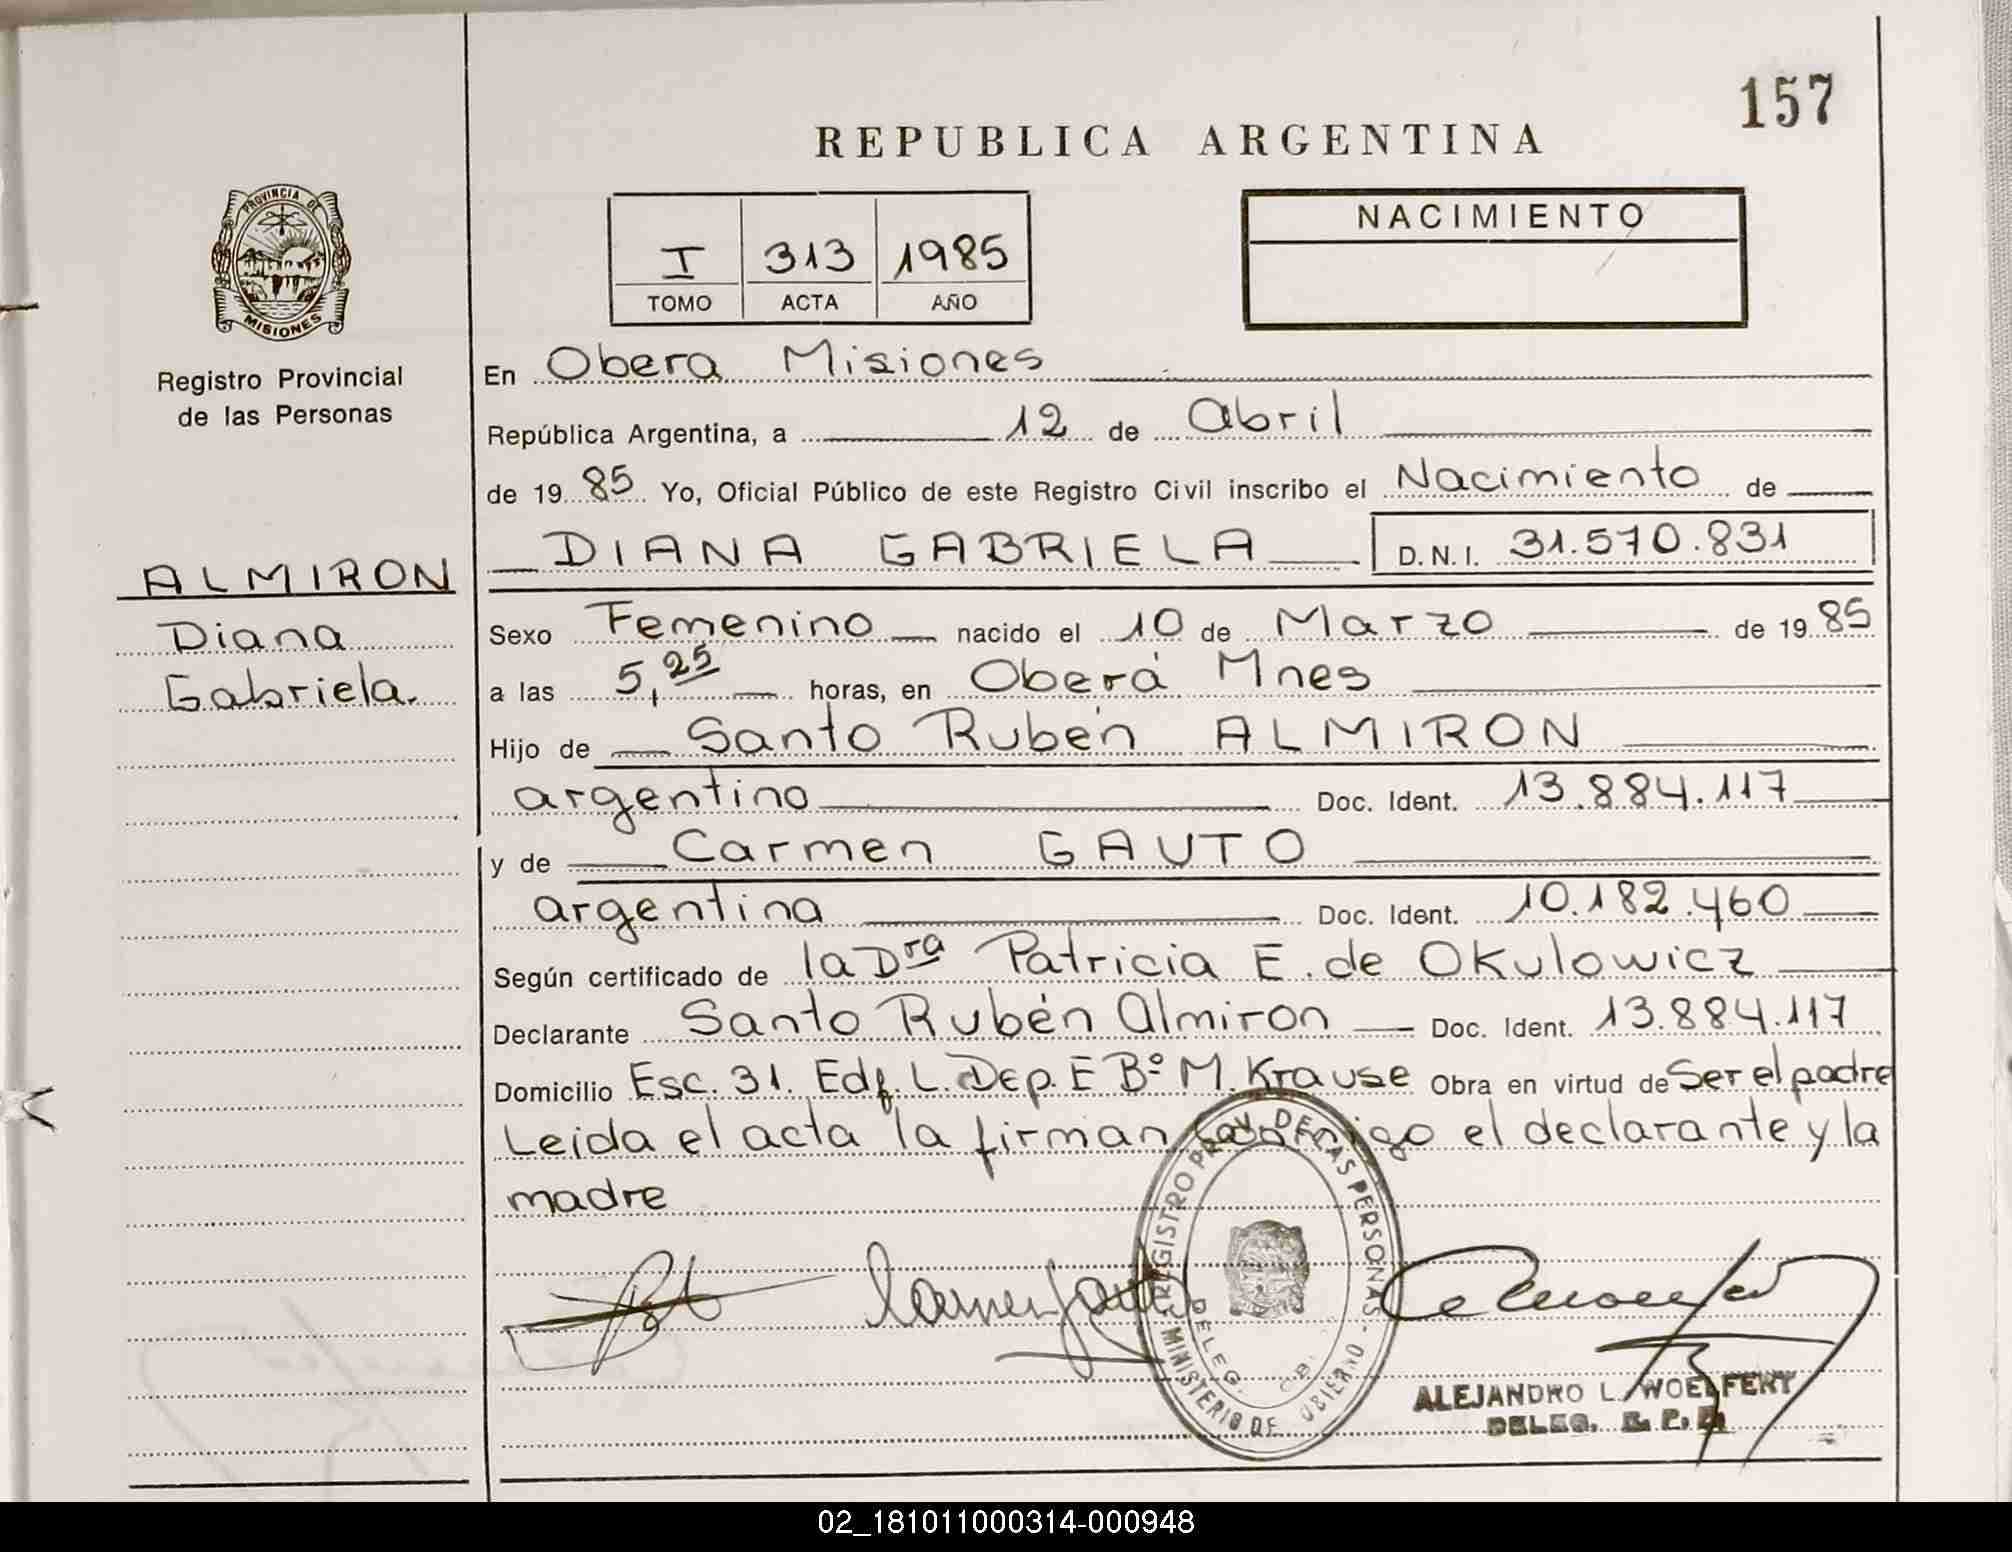 157
REPUBLICA ARGENTINA
PROVINCIA DE
MISIONES
Registro Provincial
de las Personas
I 313 1985
TOMO ACTA AÑO
NACIMIENTO
En Obera Misiones
República Argentina, a 12 de Abril
de 19 85 Yo, Oficial Público de este Registro Civil inscribo el Nacimiento de
DIANA GABRIELA D.N.I. 31.570.831
ALMIRON
Diana
Gabriela.
Sexo Femenino nacido el 10 de Marzo de 19 85
a las 5,25 horas, en Oberá Mnes
Hijo de Santo Rubén ALMIRON
argentino Doc. Ident. 13.884.117
y de Carmen GAUTO
argentina Doc. Ident. 10.182.460
Según certificado de la Dra Patricia E. de Okulowicz
Declarante Santo Rubén Almiron Doc. Ident. 13.884.117
Domicilio Esc. 31. Edf. L. Dep. E Bº M. Krause Obra en virtud de Ser el padre
Leida el acta la firman conmigo el declarante y la
madre
Carmen Gauto
REGISTRO PROV. DE LAS PERSONAS -
MINISTERIO DE GOBIERNO -
DELEG.
ALEJANDRO L. WOELFERT
DELEG. R. P. P.
02_181011000314-000948